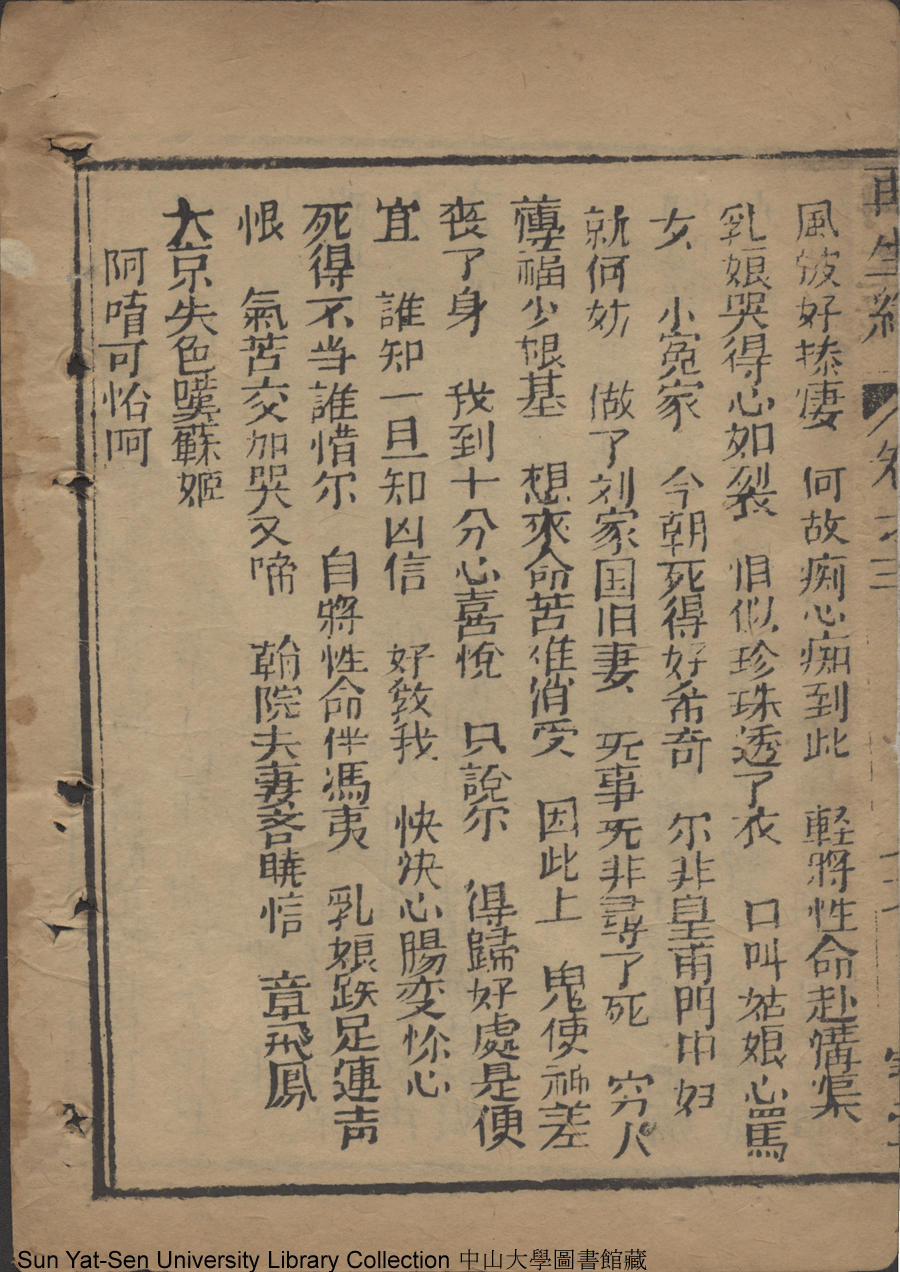 再生緣 卷之三
風波好慘悽 何故痴心痴到此 軽將性命赴溝渠
乳娘哭得心如裂 泪似珍珠透了衣 口叫姑娘心罵
女 小冤家 今朝死得好希奇 尔非皇甫門中妇
就何妨 做了刘家国旧妻 死事死非尋了死 穷人
薄福少根基 想來命苦难消受 因此上 鬼使神差
丧了身 我到十分心喜悅 只說尔 得歸好處是便
宜 誰知一旦知凶信 好教我 快快心腸变惱心
死得不当誰惜尔 自將性命伴馮夷 乳娘跌足連声
恨 氣苦交加哭又啼 翰院夫妻各曉信 章飛鳳
大京失色嘆蘇姬
阿唷可怡呵
Sun Yat-Sen University Library Collection 中山大學圖書館藏